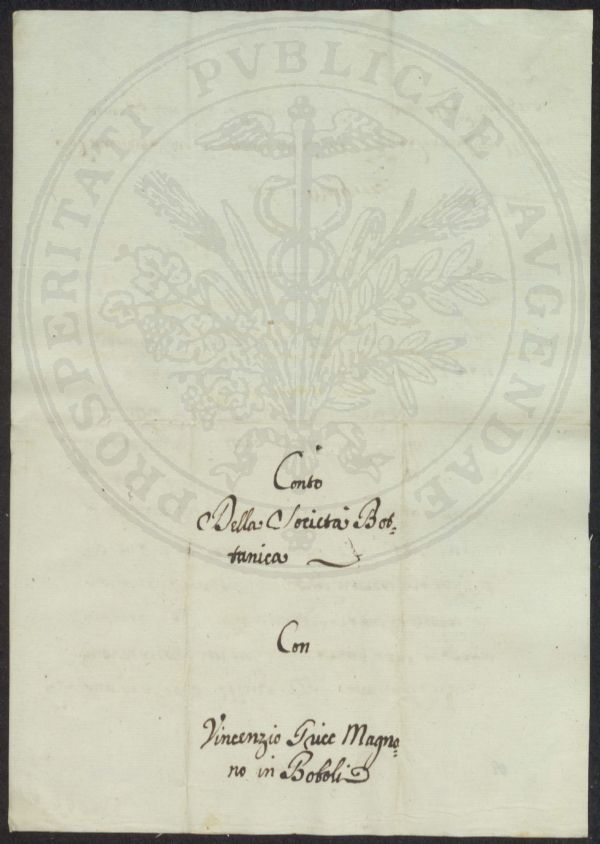 PROSPERITATI PVBLICAE AVGENDAE
Conto
Della Società Bot=
tanica
Con
Vincenzio Magno=
no in Boboli